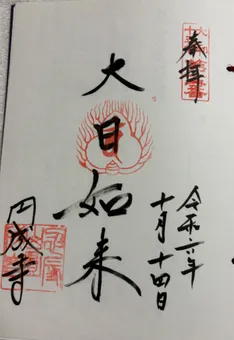 奉拝
大日如来
令和六年
十月十四日
円成寺